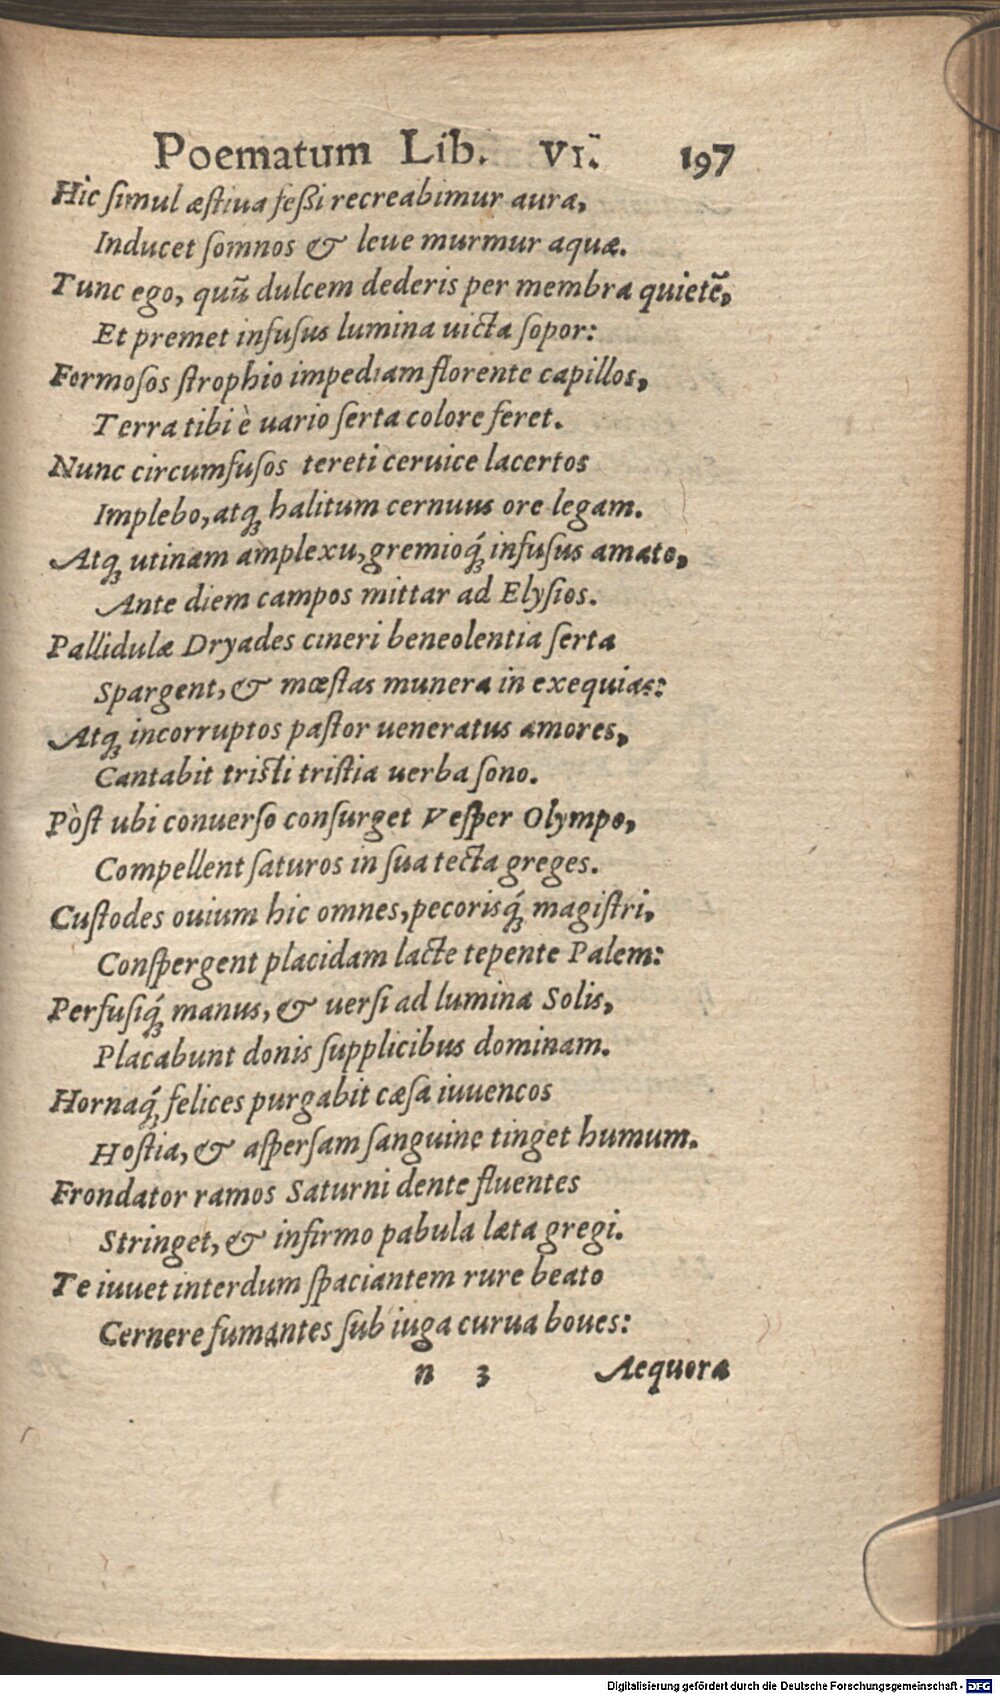 Poematum Lib. VI. 197
Hic ſimul æſtiua feßi recreabimur aura,
Inducet ſomnos & leue murmur aquæ.
Tunc ego, quū dulcem dederis per membra quietē,
Et premet infuſus lumina uicta ſopor:
Formoſos ſtrophio impediam florente capillos,
Terra tibi è uario ſerta colore feret.
Nunc circumfuſos tereti ceruice lacertos
Implebo, atq; halitum cernuus ore legam.
Atq; utinam amplexu, gremioq́; infuſus amato,
Ante diem campos mittar ad Elyſios.
Pallidulæ Dryades cineri beneolentia ſerta
Spargent, & mœſtas munera in exequias:
Atq; incorruptos paſtor ueneratus amores,
Cantabit triſti triſtia uerba ſono.
Pòſt ubi conuerſo conſurget Veſper Olympo,
Compellent ſaturos in ſua tecta greges.
Cuſtodes ouium hic omnes, pecorisq́; magiſtri,
Conſpergent placidam lacte tepente Palem:
Perfuſiq́; manus, & uerſi ad lumina Solis,
Placabunt donis ſupplicibus dominam.
Hornaq́; felices purgabit cæſa iuuencos
Hoſtia, & aſperſam ſanguine tinget humum.
Frondator ramos Saturni dente fluentes
Stringet, & infirmo pabula læta gregi.
Te iuuet interdum ſpaciantem rure beato
Cernere fumantes ſub iuga curua boues:
n 3 Aequora
Digitalisierung gefördert durch die Deutsche Forschungsgemeinschaft - DFG